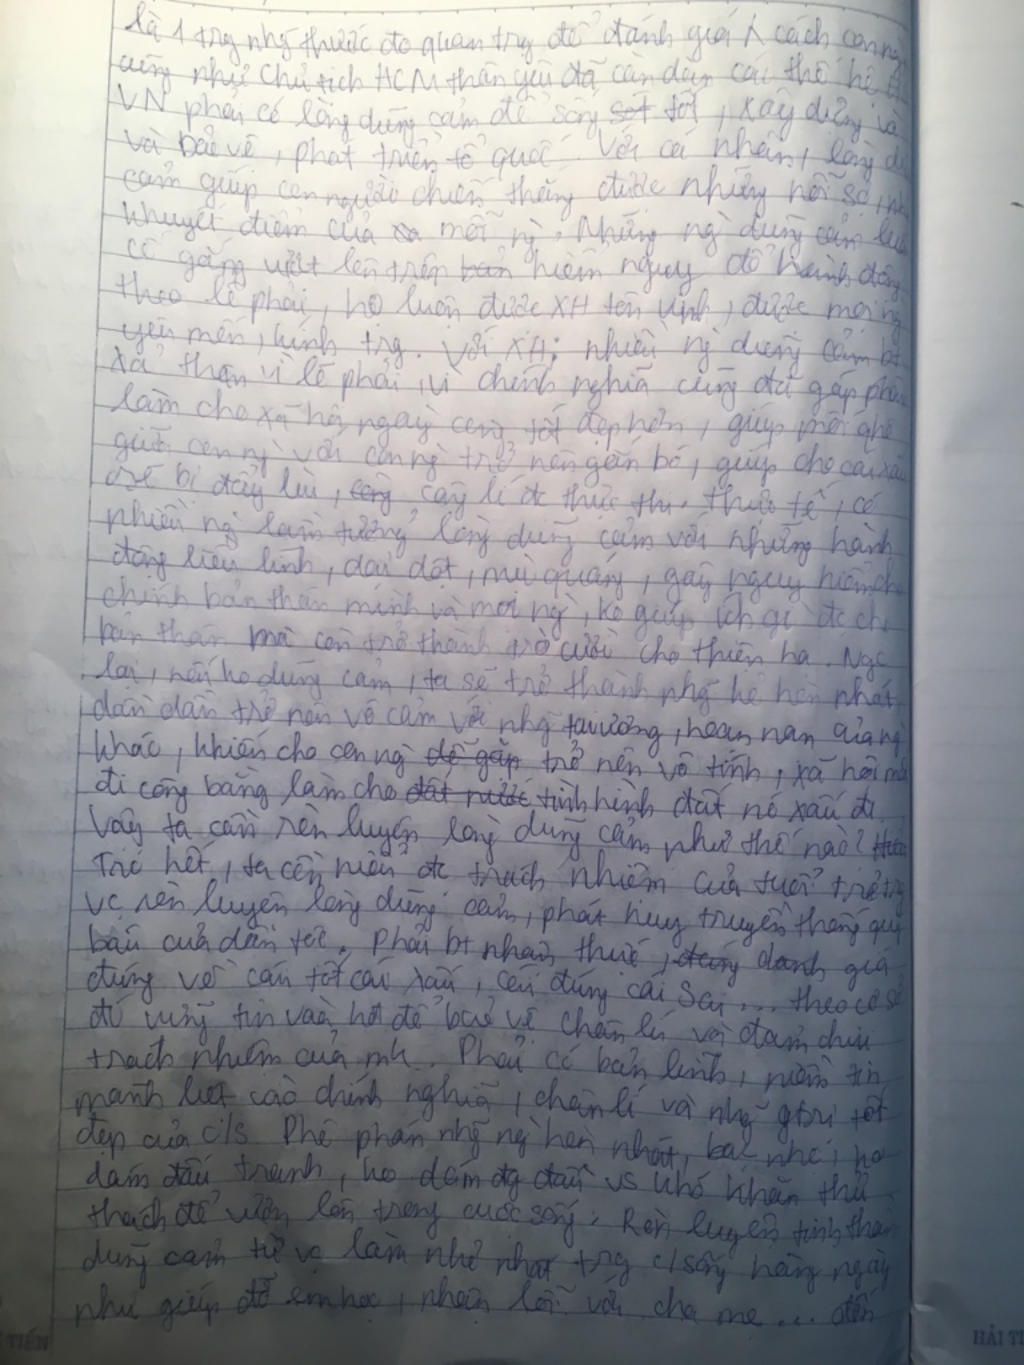 là 1 trg nhg thước đo quan trg để đánh giá n cách con ng
cũng như chủ tịch HCM thân yêu đã căn dặn các thế hệ
VN phải có lòng dũng cảm để sống sót tốt, xây dựng và
và bảo vệ, phát triển tổ quốc. Với cá nhân, lòng dũ
cảm giúp con người chiến thắng được những nỗi sợ, nh
khuyết điểm của mỗi ng. Những ng dũng cảm luô
cố gắng vượt lên trên hiểm nguy để hành động
theo lẽ phải, họ luôn được XH tôn vinh, được mọi ng
yêu mến, kính trg. Với XH: nhiều ng dũng cảm bt
xả thân vì lẽ phải, vì chính nghĩa cũng đã góp phần
làm cho xã hội ngày càng tốt đẹp hơn, giúp mối qhệ
giữa con ng với con ng trở nên gắn bó, giúp cho cái xấu
bị đẩy lùi, công lí đc thực thi. Thực tế, có
nhiều ng lầm tưởng lòng dũng cảm với những hành
động liều lĩnh, dại dột, mù quáng, gây nguy hiểm cho
chính bản thân mình và mọi ng, ko giúp ích gì đc ch
bản thân mà còn trở thành trò cười cho thiên hạ. Ngc
lại, nếu ko dũng cảm, ta sẽ trở thành nhg kẻ hèn nhát,
dần dần trở nên vô cảm với nhg tai ương, hoạn nạn của ng
khác, khiến cho con ng để gặp trở nên vô tình, xã hội mấ
đi công bằng làm cho đất nước tình hình đất nc xấu đi.
Vậy ta cần rèn luyện lòng dũng cảm như thế nào?
Trc hết, ta cần hiểu đc trách nhiệm của tuổi trẻ trg
vc rèn luyện lòng dũng cảm, phát huy truyền thống quý
báu của dân tộc. Phải bt nhận thức, đúng đánh giá
đúng về cái tốt cái xấu, cái đúng cái sai... theo cơ sở
đó vững tin vào nó để bảo vệ chân lí và dám chịu
trách nhiệm của mk. Phải có bản lĩnh, niềm tin
mãnh liệt vào chính nghĩa, chân lí và nhg gtrị tốt
đẹp của c/s. Phê phán nhg ng hèn nhát, bạc nhược, ko
dám đấu tranh, ko dám đg đầu vs khó khăn thử
thách để vươn lên trong cuộc sống. Rèn luyện tinh thần
dũng cảm từ vc làm nhỏ nhất trg c/sống hàng ngày
như giúp đỡ em học, nhận lỗi với cha mẹ... đến
TIẾN
HẢI TI